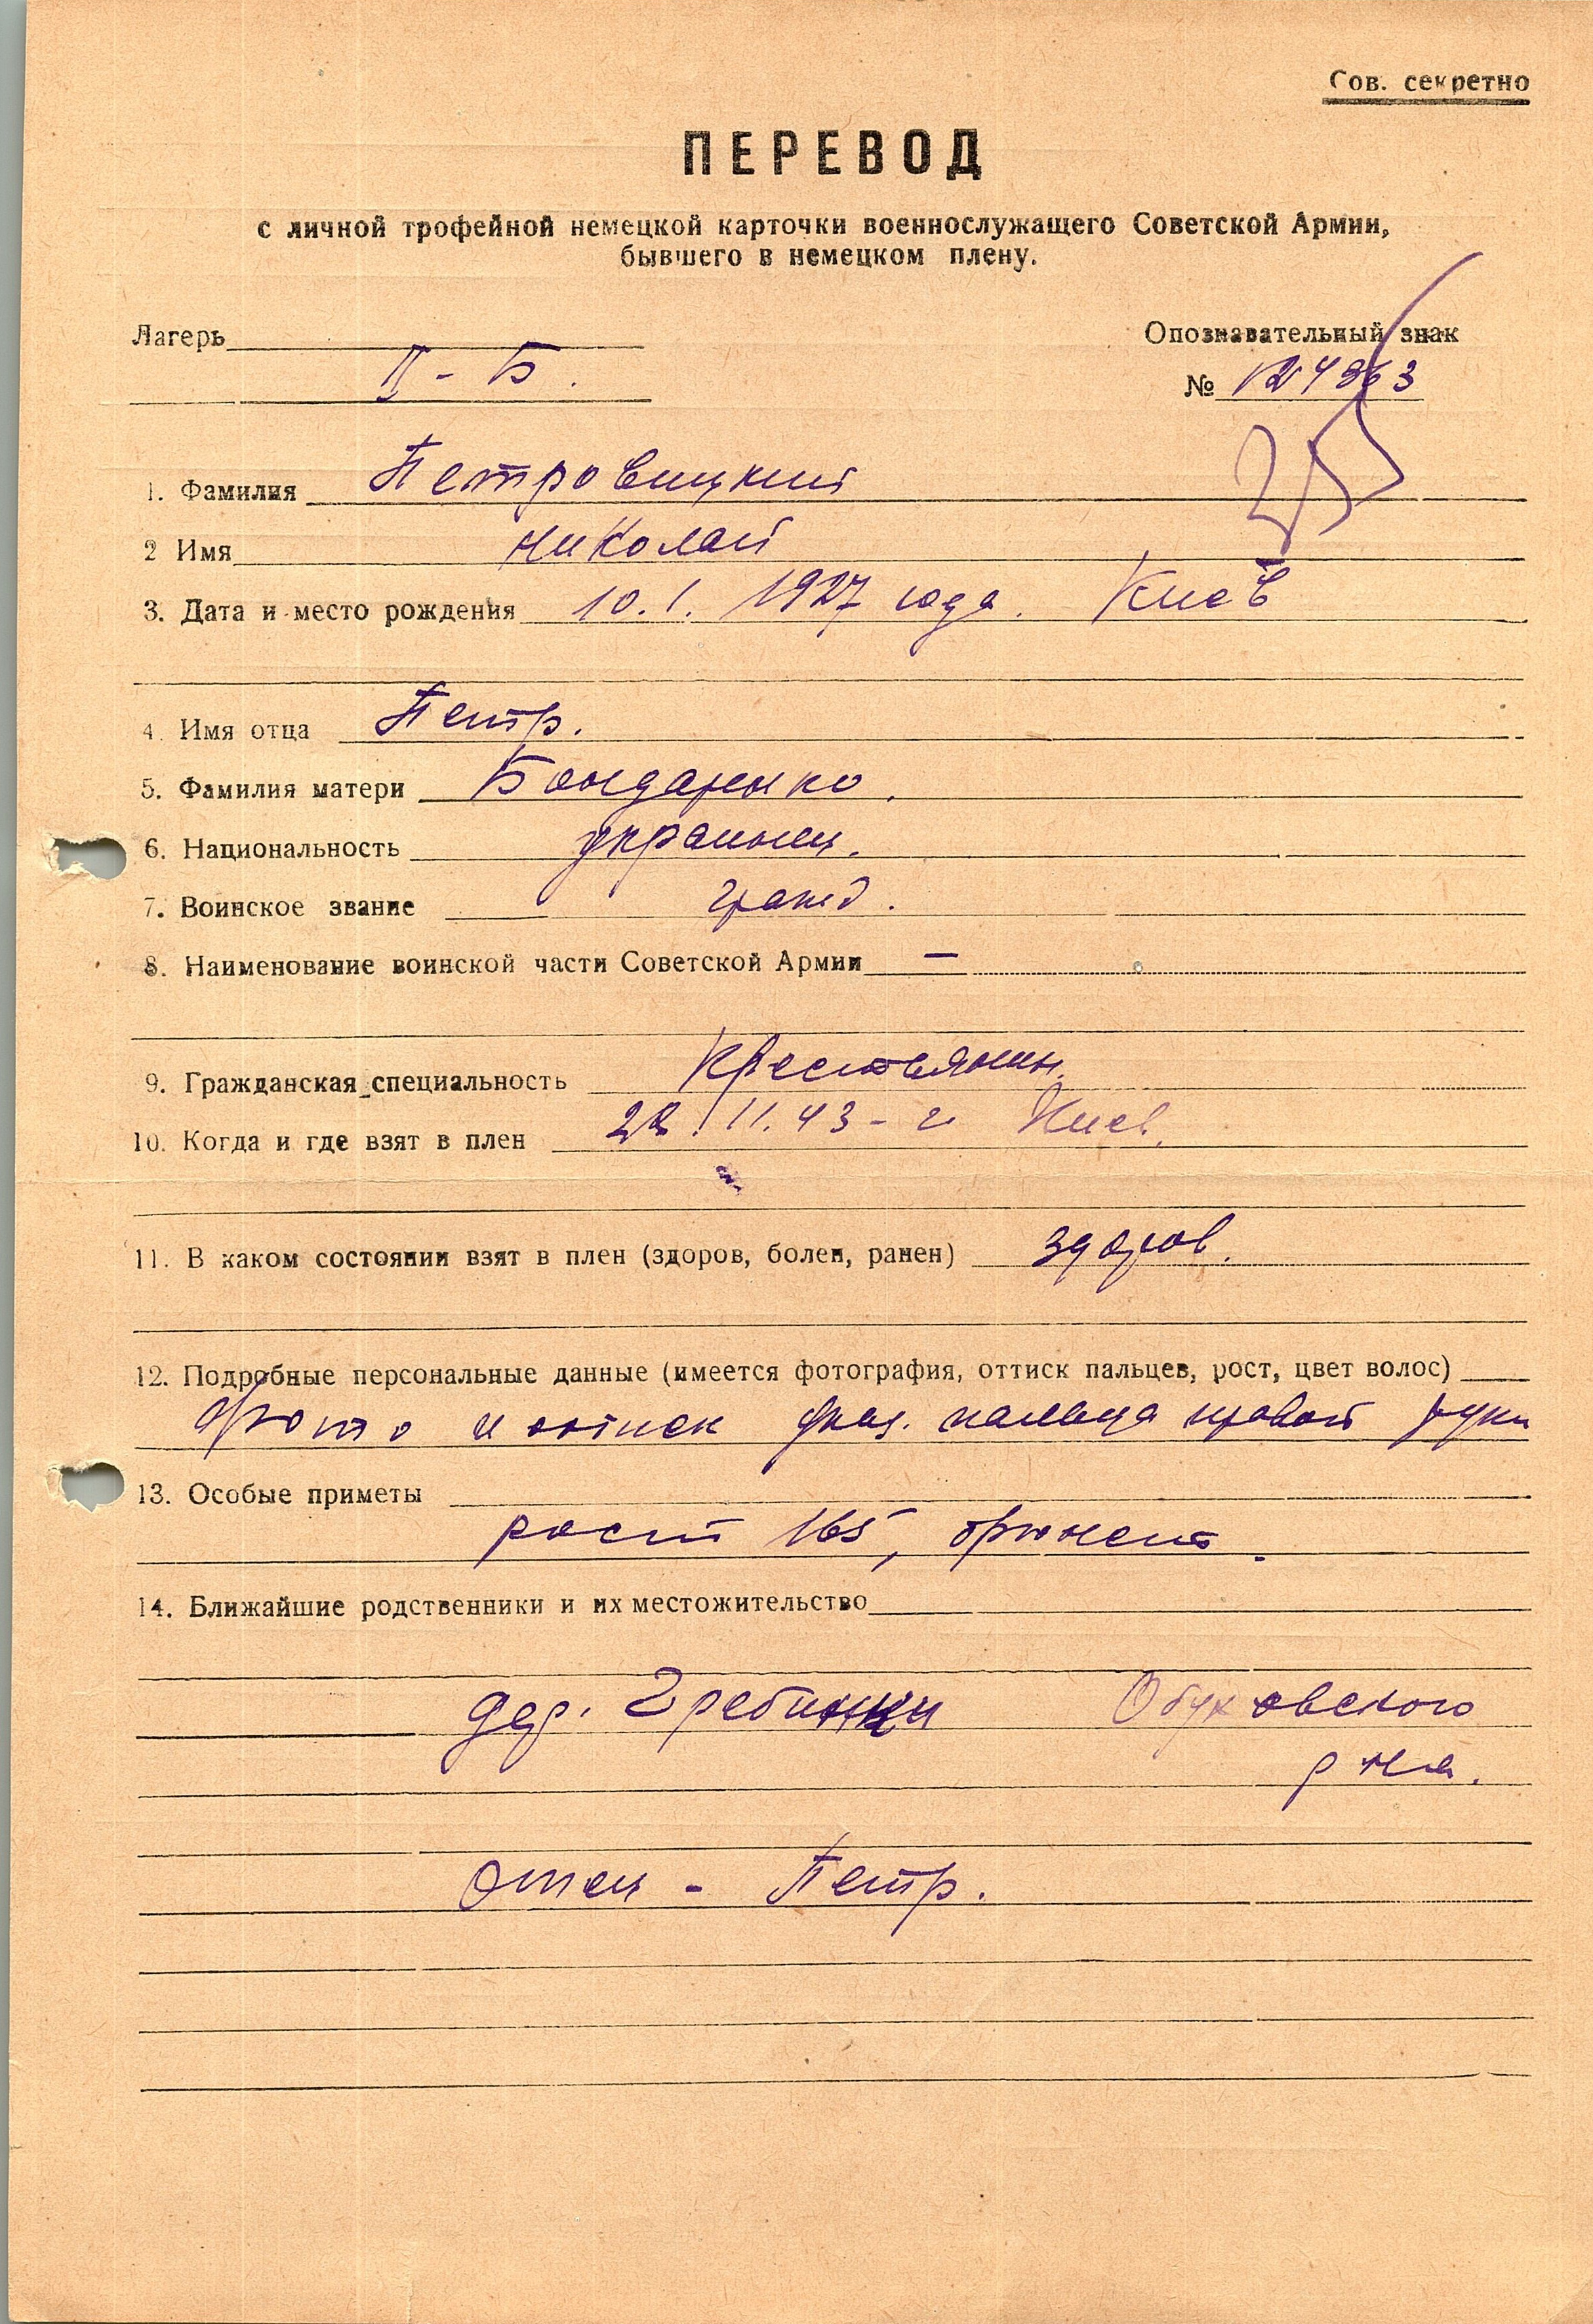 Сов. секретно
ПЕРЕВОД
с личной трофейной немецкой карточки военнослужащего Советской Армии,
бывшего в немецком плену.
Лагерь
Опознавательный знак
II - Б.
№ 124963
1. Фамилия Петровицкий
2 Имя Николай
3. Дата и место рождения 10.1.1927 года. Киев
4. Имя отца Петр.
5. Фамилия матери Бондаренко.
6. Национальность украинец.
7. Воинское звание гражд.
8. Наименование воинской части Советской Армии —
9. Гражданская специальность Крестьянин.
10. Когда и где взят в плен 11.43 - г Киев.
11. В каком состоянии взят в плен (здоров, болен, ранен) здоров.
12. Подробные персональные данные (имеется фотография, оттиск пальцев, рост, цвет волос)
Фото и оттиск указ. пальца правой руки
13. Особые приметы
рост 165, брюнет.
14. Ближайшие родственники и их местожительство
дер. Обуховского
р-на.
Отец - Петр.